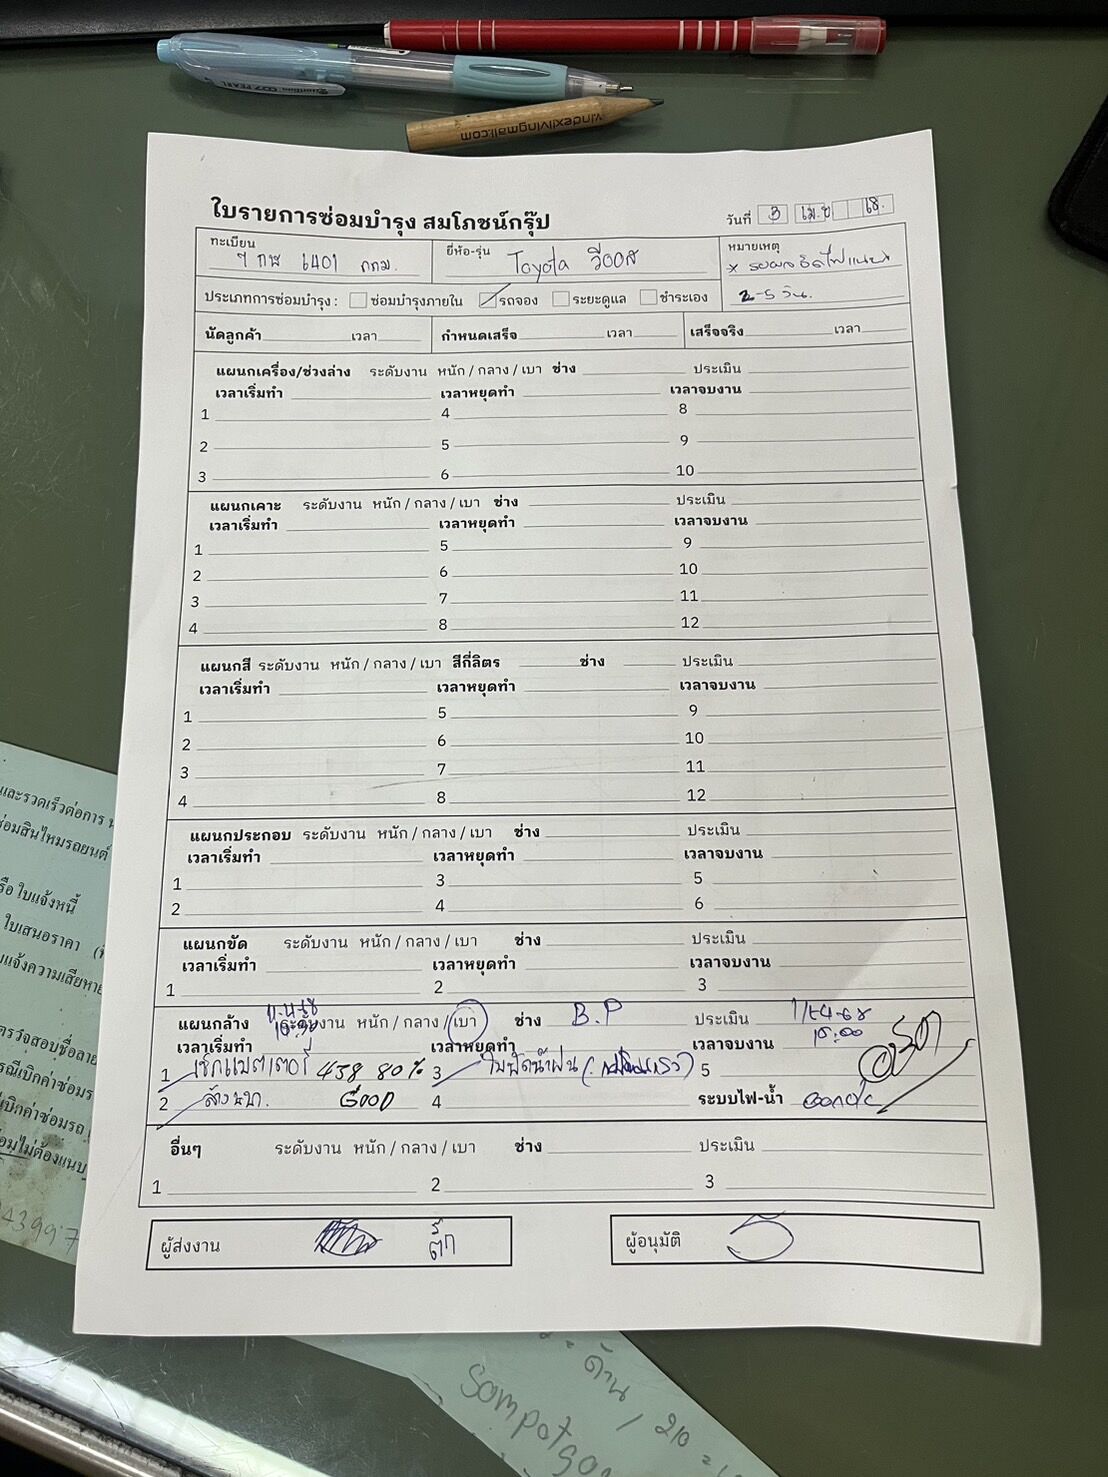 windexlivingmall.com
ใบรายการซ่อมบำรุง สมโภชน์กรุ๊ป
วันที่ 3 เม.ย 68.
ทะเบียน 6401 กทม.
ยี่ห้อ-รุ่น Toyota วีออส
หมายเหตุ
2-5 วัน.
ประเภทการซ่อมบำรุง : ซ่อมบำรุงภายใน รถจอง ระยะดูแล ชำระเอง
นัดลูกค้า เวลา กำหนดเสร็จ เวลา เสร็จจริง เวลา
แผนกเครื่อง/ช่วงล่าง ระดับงาน หนัก / กลาง / เบา ช่าง ประเมิน
เวลาเริ่มทำ เวลาหยุดทำ เวลาจบงาน
1 4 8
2 5 9
3 6 10
แผนกเคาะ ระดับงาน หนัก / กลาง / เบา ช่าง ประเมิน
เวลาเริ่มทำ เวลาหยุดทำ เวลาจบงาน
1 5 9
2 6 10
3 7 11
4 8 12
แผนกสี ระดับงาน หนัก / กลาง / เบา สีกี่ลิตร ช่าง ประเมิน
เวลาเริ่มทำ เวลาหยุดทำ เวลาจบงาน
1 5 9
2 6 10
3 7 11
4 8 12
แผนกประกอบ ระดับงาน หนัก / กลาง / เบา ช่าง ประเมิน
เวลาเริ่มทำ เวลาหยุดทำ เวลาจบงาน
1 3 5
2 4 6
แผนกขัด ระดับงาน หนัก / กลาง / เบา ช่าง ประเมิน
เวลาเริ่มทำ เวลาหยุดทำ เวลาจบงาน
1 2 3
แผนกล้าง ระดับงาน หนัก / กลาง / เบา ช่าง B.P ประเมิน
เวลาเริ่มทำ เวลาหยุดทำ เวลาจบงาน
1 เช็กแบตเตอรี่ 458 80% 3 ใบปัดน้ำฝน 5
2 GOOD 4 ระบบไฟ-น้ำ
อื่นๆ ระดับงาน หนัก / กลาง / เบา ช่าง ประเมิน
1 2 3
ผู้ส่งงาน
ผู้อนุมัติ
และรวดเร็วต่อการ
ซ่อมสินไหมรถยนต์
ใบแจ้งหนี้
ใบเสนอราคา
แจ้งความเสียหาย
ตรวจสอบชื่อ